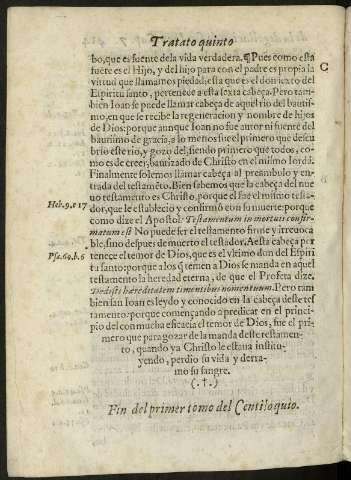 Tratato quinto
bo, que es fuente dela vida verdadera. ¶ Pues como esta
fuẽte es el Hijo, y del hijo para con el padre es propia la
virtud que llamamos piedad: esta que es el don sexto del
Espiritu santo, pertenece a esta sexta cabeça. Pero tam-
bien Ioan se puede llamar cabeça de aquel rio del bautis
mo, en que se recibe la regeneracion y nombre de hijos
de Dios: porque aunque Ioan no fue autor ni fuente del
bautismo de gracia, a lo menos fue el primero que descu
brio este rio, y gozo del, siendo primero que todos, co-
mo es de creer, bautizado de Christo en el mismo Iordã.
Finalmente solemos llamar cabeça al preambulo y en-
trada del testamẽto. Bien sabemos que la cabeça del nue
uo testamento es Christo, porque el fue el mismo testa-
dor, que le establecio y confirmò con su muerte: porque
como dize el Apostol. Testamentum in mortuis confir-
matum est No puede ser el testamento firme y irreuoca
ble, sino despues de muerto el testador. A esta cabeça per
tenece el temor de Dios, que es el vltimo don del Espiri
tu santo: porque a los q̃ temen a Dios se manda en aquel
testamento la heredad eterna, de que el Profeta dize.
Dedisti hæreditatem timentibus nomen tuum. Pero tam
bien san Ioan es leydo y conocido en la cabeça deste tes
tamento: porque començando a predicar en el princi-
pio del con mucha eficacia el temor de Dios, fue el pri-
mero que para gozar de la manda deste testamen-
to, quando ya Christo le estaua institu-
yendo, perdio su vida y derra-
mo su sangre.
(.†.)
Fin del primer tomo del Centiloquio.
C
Heb. 9. c 17
Psa. 60. b. 6